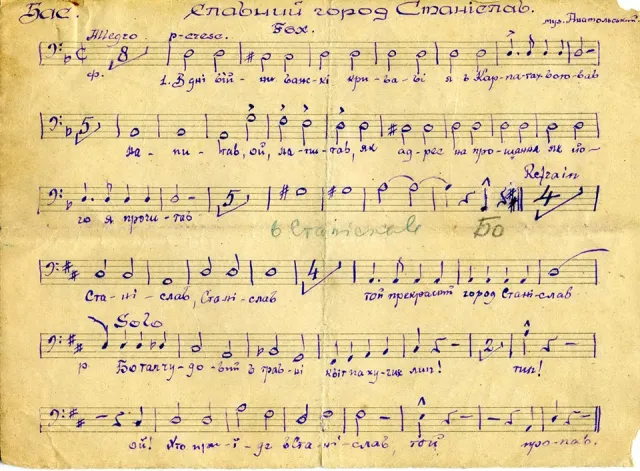 Бас. Славний город Станіслав. муз. Анатольський.
Allegro. p-cresc. Fox.
8
ф. 1. В дні вій-ни важкі кри-ва-ві я в Карпатах воював
5
на-пи-тав, ой, на-пи-тав, як ад-рес на прощання як йо-
Refrain
5 4
го я прочитав
в Станіславе Бо
4
Ста-ні-слав, Стані-слав той прекрасний город Стані-слав
Solo
2
р Бо там чу-до-вий в трав-ні квіт пахучих лип! тип!
ой! Хто при-ї-де в Ста-ні-слав, той про-пав.